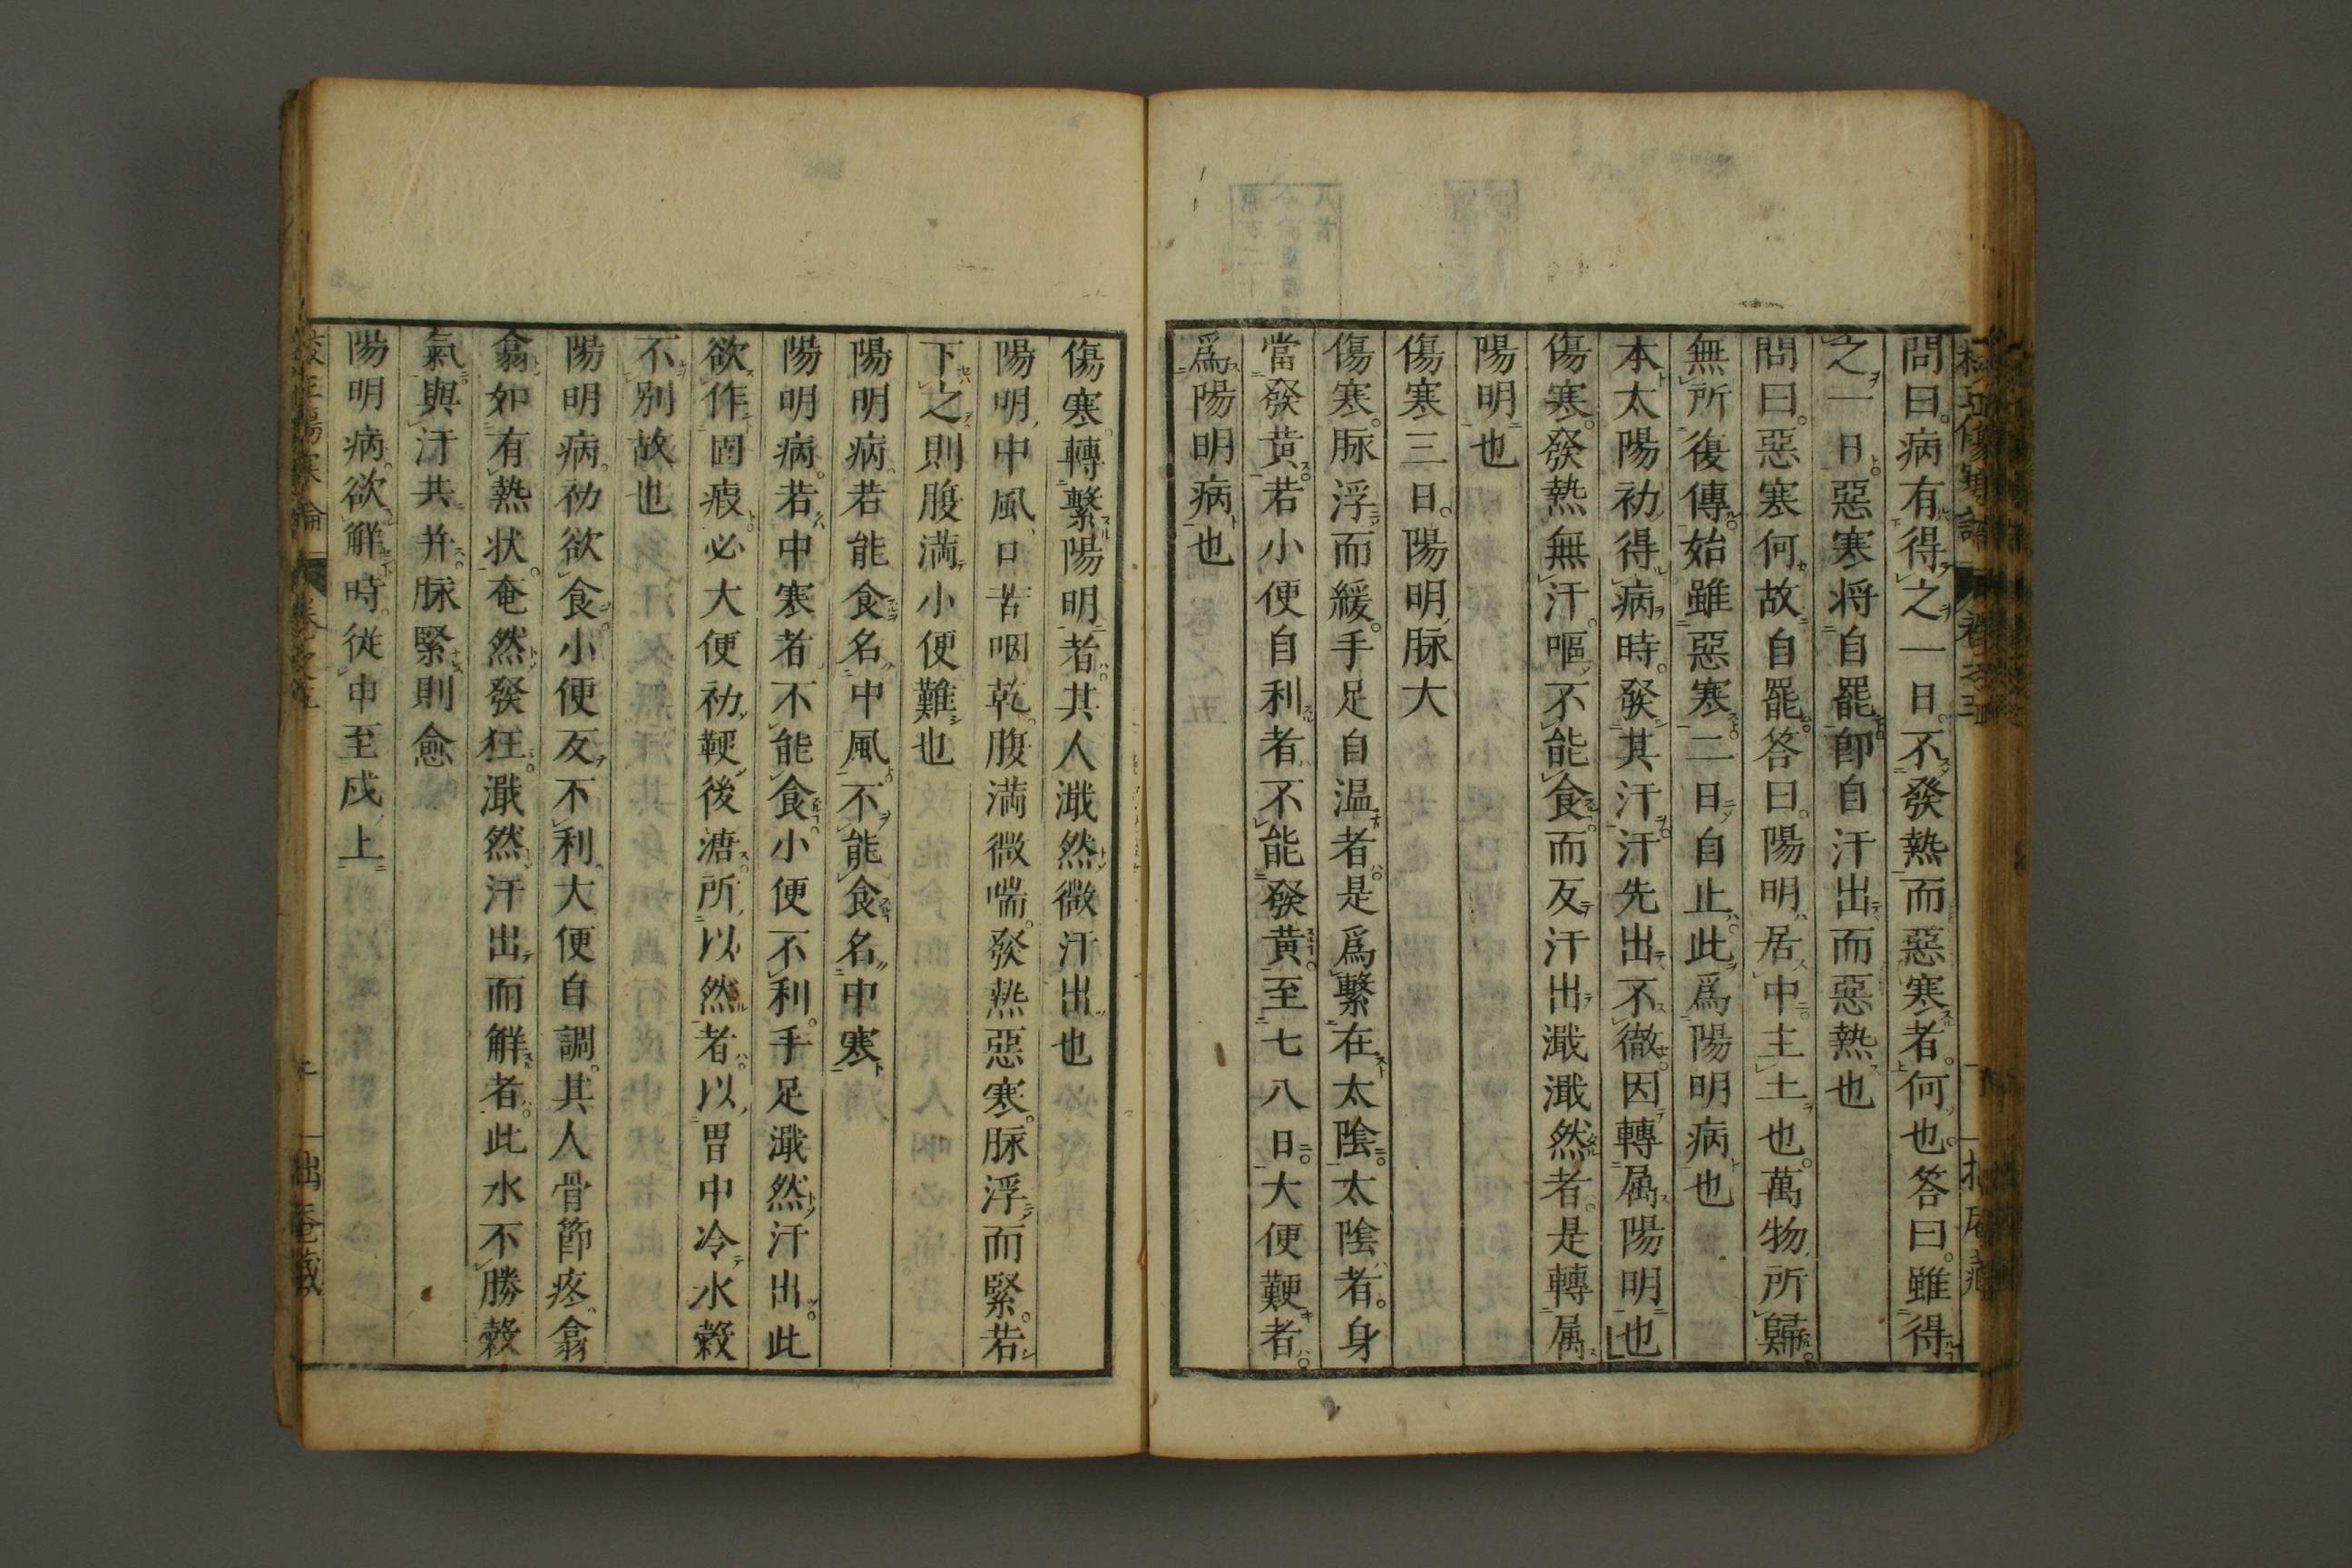 問曰病有得之一日不發熱而惡寒者何也答曰雖得
之一日惡寒将自罷卽自汗出而惡熱也
問曰惡寒何故自罷答曰陽明居中主土也萬物所歸
無所復傳始雖惡寒二日自止此爲陽明病也
本太陽初得病時發其汗汗先出不徹因轉属陽明也
傷寒發熱無汗嘔不能食而反汗出濈濈然者是轉属
陽明也
傷寒三日陽明脉大
傷寒脉浮而緩手足自温者是爲繫在太陰太陰者身
當發黃若小便自利者不能發黃至七八日大便鞕者
爲陽明病也
傷寒轉繫陽明者其人濈然微汗出也
陽明中風口苦咽乾腹満微喘發熱惡寒脉浮而緊若
下之則腹満小便難也
陽明病若能食名中風不能食名中寒
陽明病若中寒者不能食小便不利手足濈然汗出此
欲作固瘕必大便初鞕後溏所以然者以胃中冷水穀
不別故也
陽明病初欲食小便反不利大便自調其人骨節疼翕
翕如有熱状奄然發狂濈然汗出而解者此水不勝穀
氣與汗共并脉緊則愈
陽明病欲解時從申至戌上